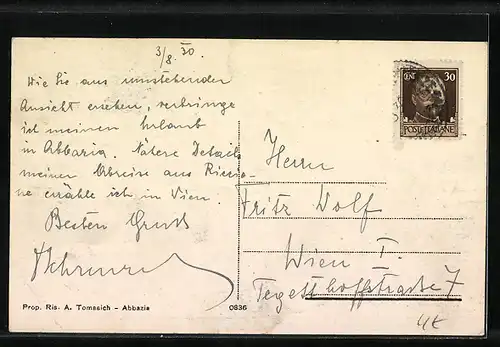 3/8. 30.
Wie Sie aus umstehender
Ansicht ersehen, verbringe
ich meinen Urlaub
in Abbazia. Nähere Details
meiner Abreise aus
erzähle ich in Wien.
Besten Gruß
CENT 30
POSTE ITALIANE
Herrn
Fritz Wolf
Wien I.
Tegetthoffstrasse 7
Prop. Ris. A. Tomasich - Abbazia
0836